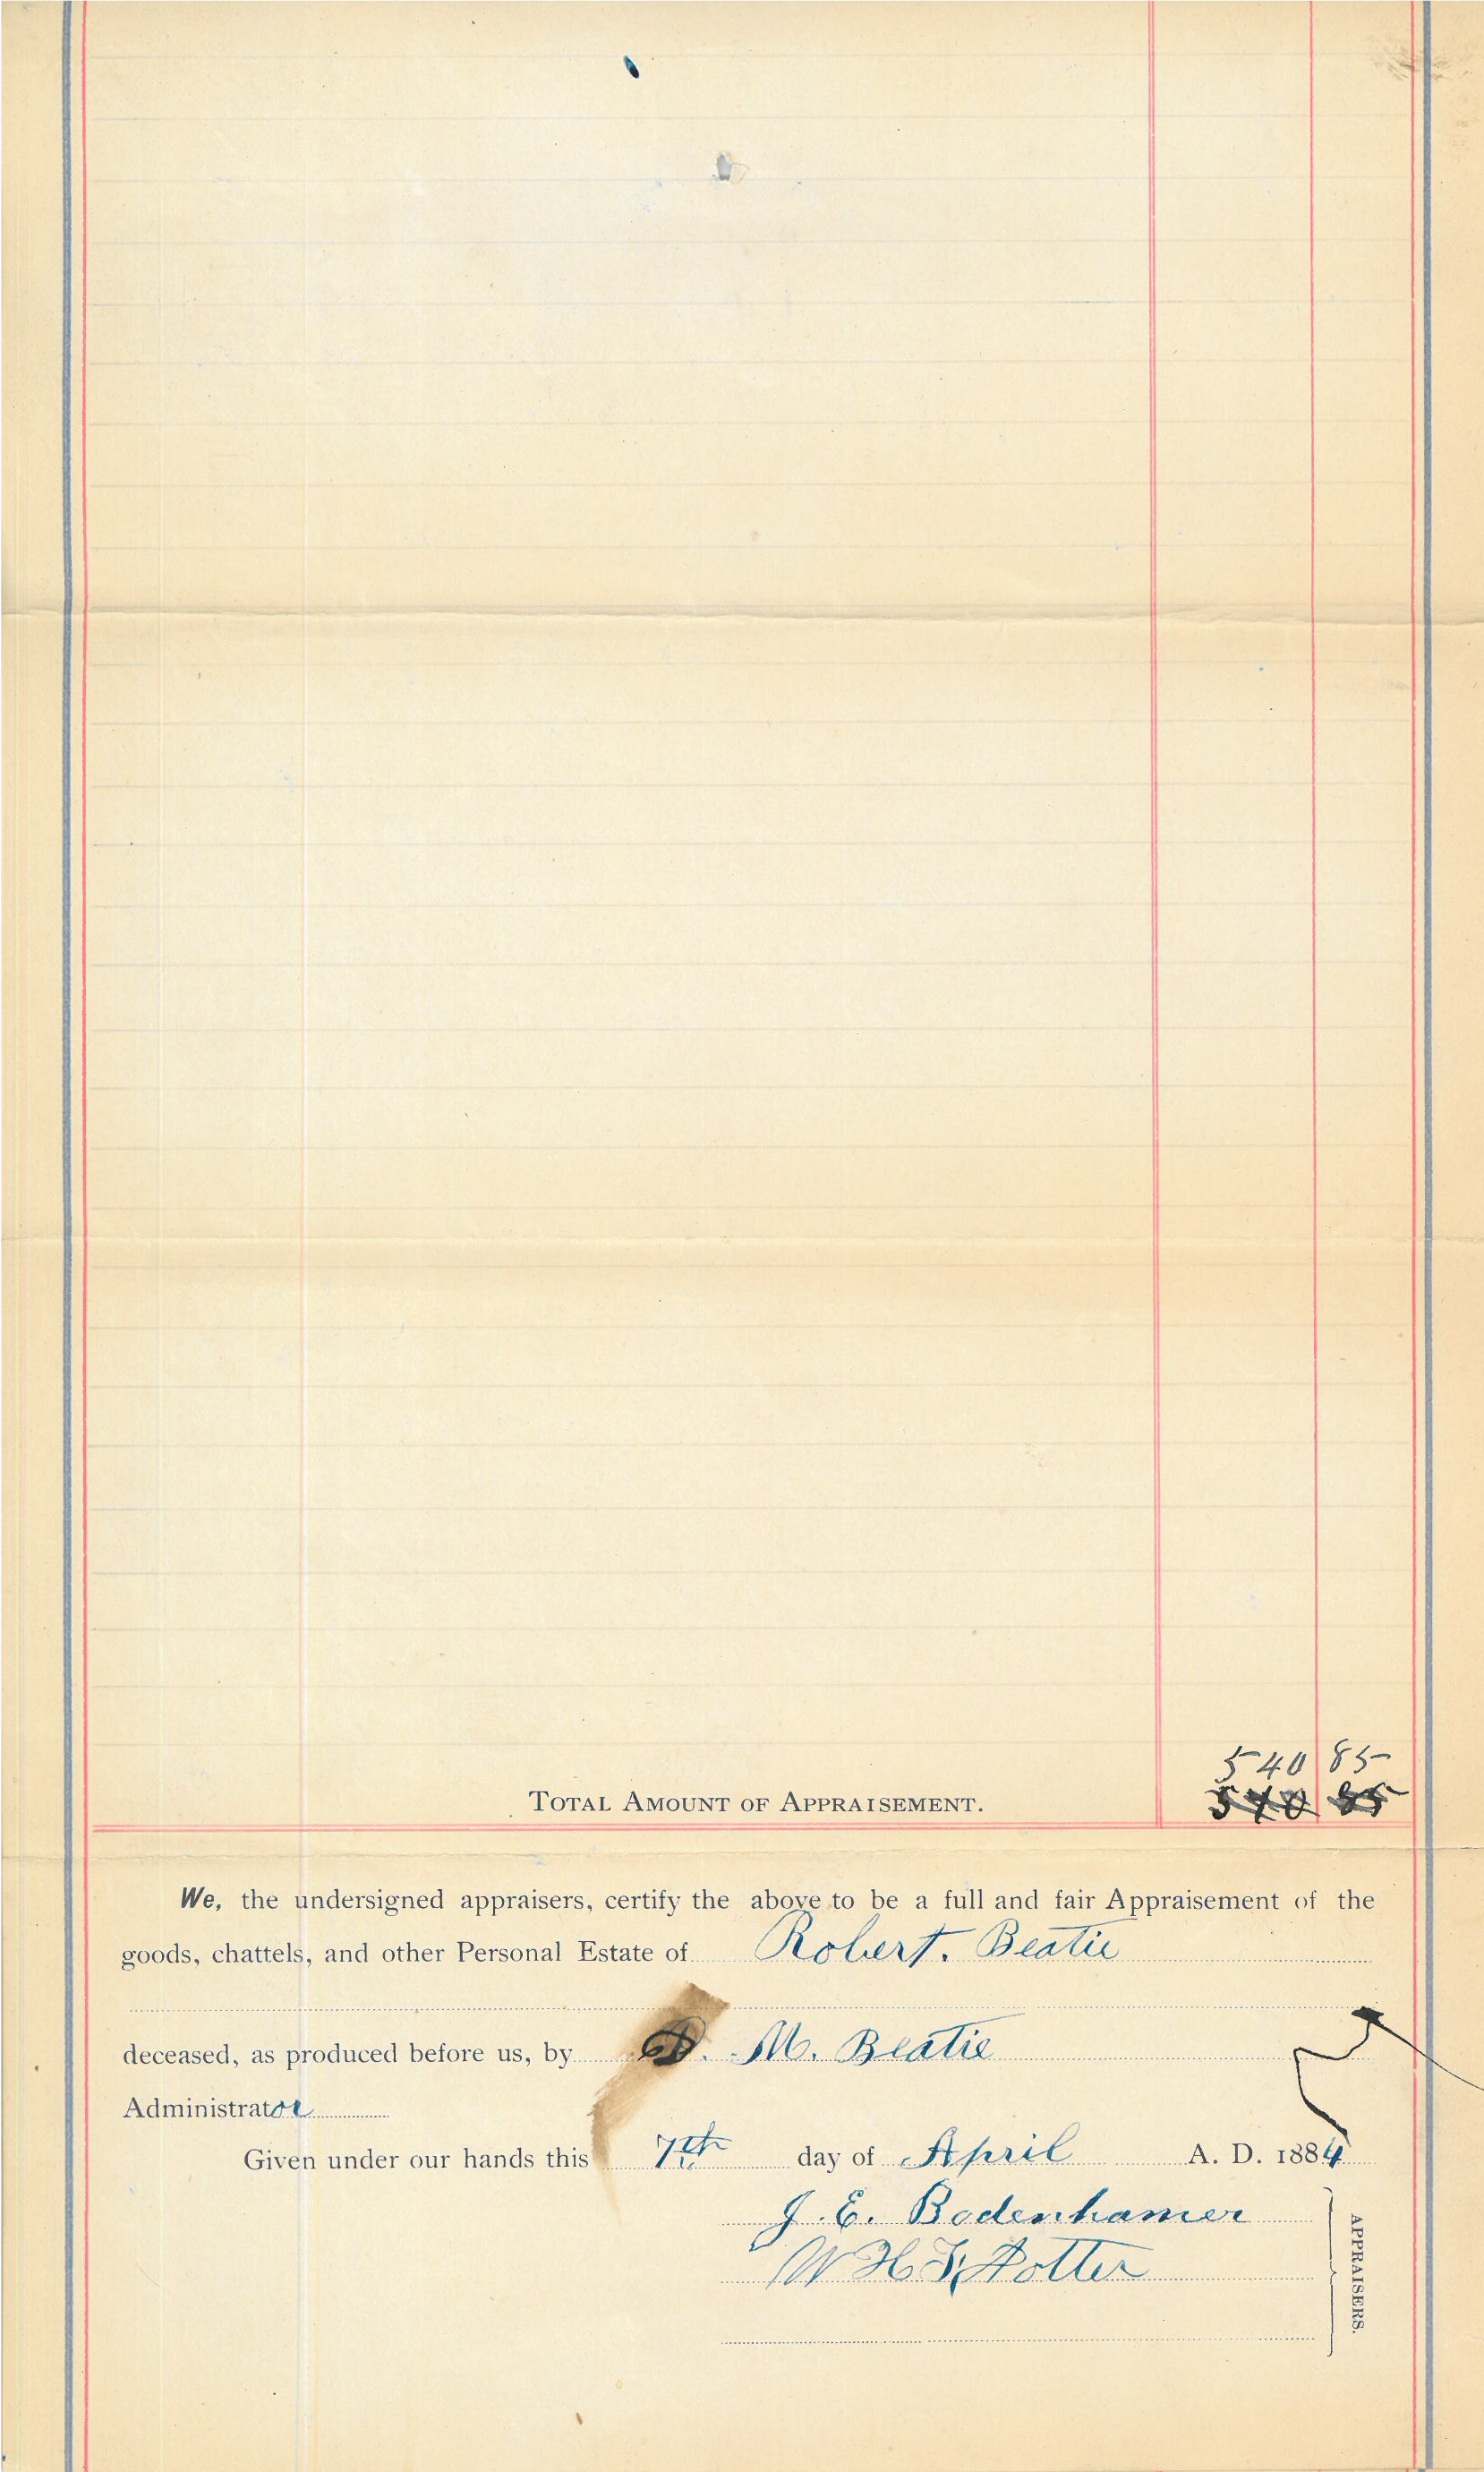 540 85
TOTAL AMOUNT OF APPRAISEMENT. 540 85
We, the undersigned appraisers, certify the above to be a full and fair Appraisement of the
goods, chattels, and other Personal Estate of Robert. Beatie
deceased, as produced before us, by D. M. Beatie
Administrator
Given under our hands this 7th day of April A. D. 1884
J. E. Bodenhamer
W. H. S. Potter
APPRAISERS.